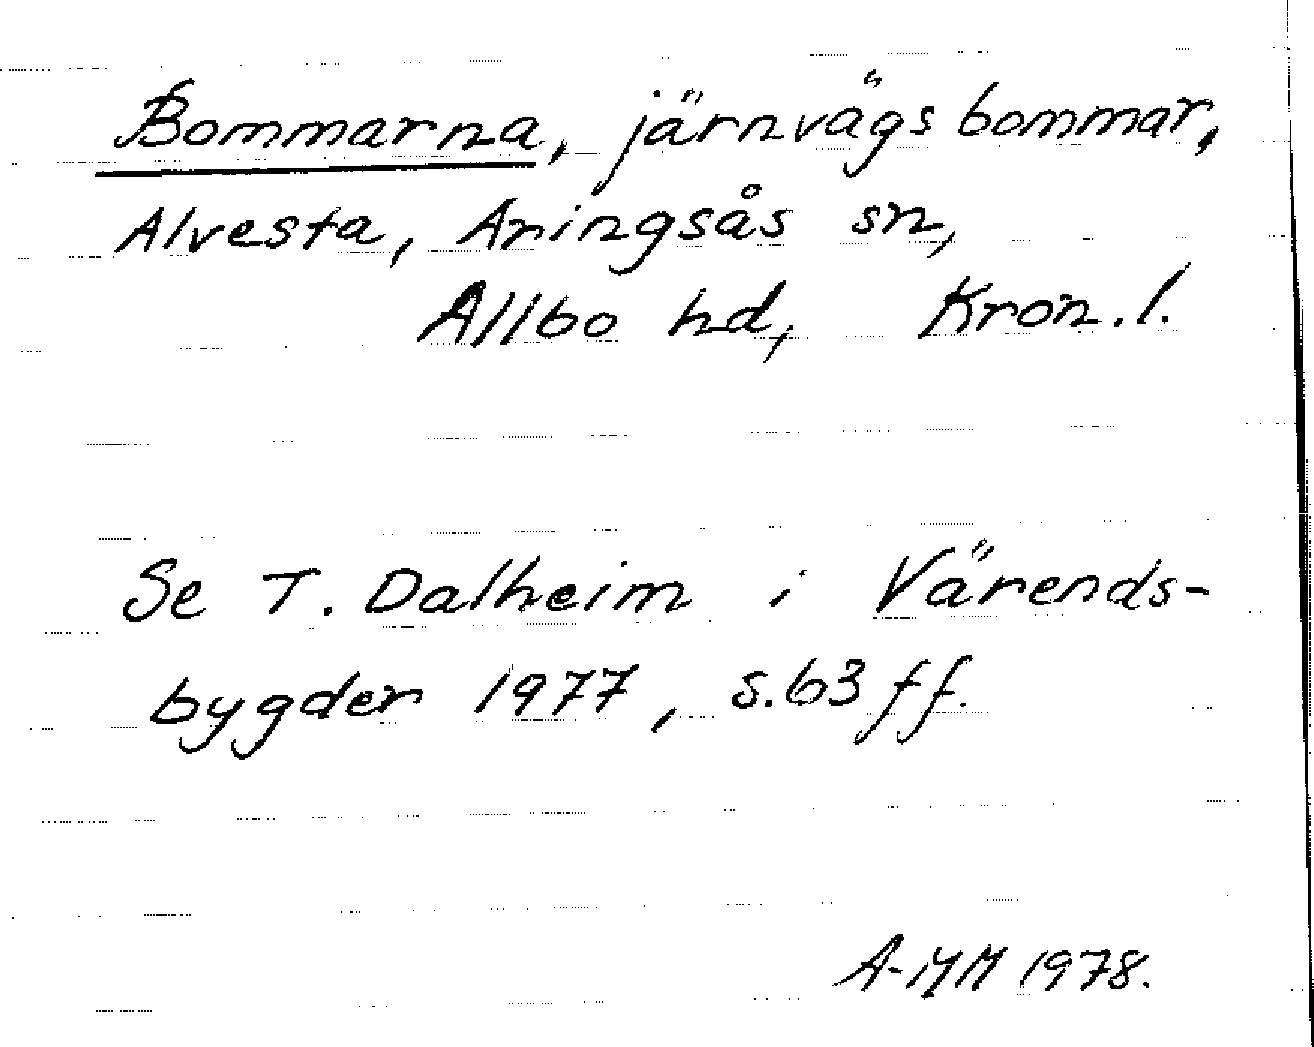 Bommarna, järnvägsbommar,
Alvesta, Aringsås sn,
Allbo hd, Kron. l.
Se T. Dalheim i Värends-
bygder 1977, s. 63 ff.
1978.